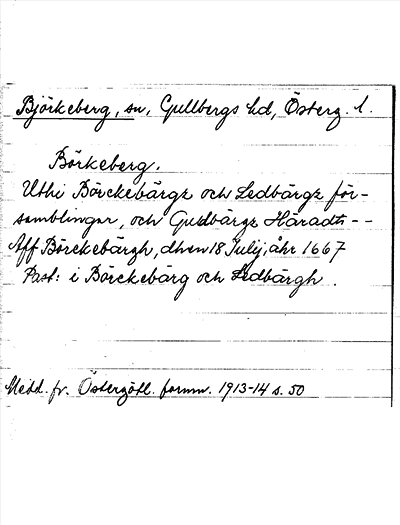 Björkeberg, sn, Gullbergs hd, Österg. l.
Börkeberg.
Uthi Börckebärgz och Ledbärgz för-
samblingar, och Guldbärgz Häradt --
Aff Börckebärgh, dhen 18 Julij, åhr 1667
Past: i Börckebärg och Ledbärgh.
Medd. fr. Östergötl. fornm. 1913-14 s. 50